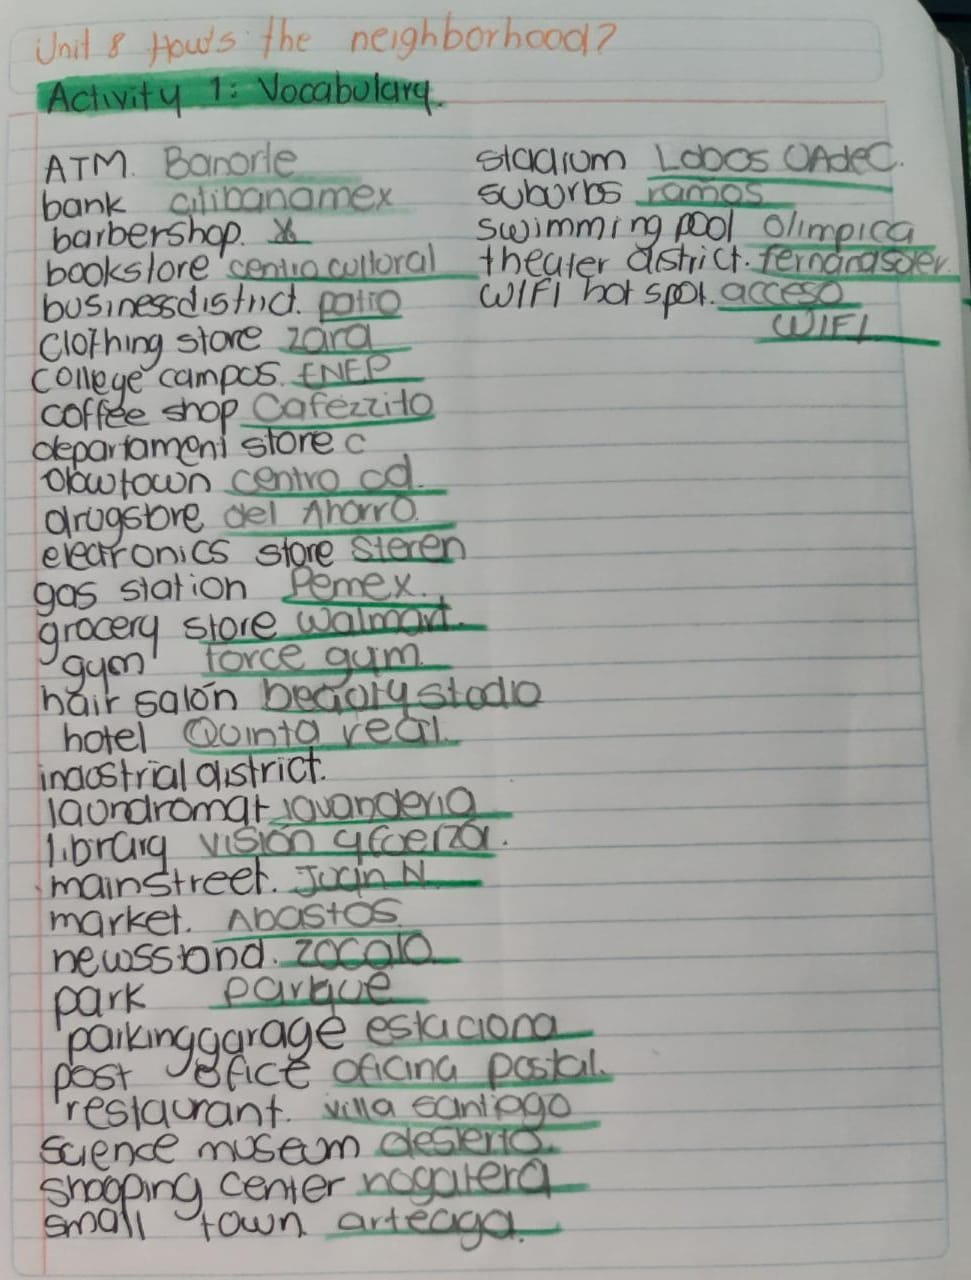 Unit 8 How's the neighborhood?
Activity 1: Vocabulary.
ATM. Banorte
bank citibanamex
barbershop.
bookstore centro cultural
businessdistrict. patio
Clothing store zara
college campus. ENEP
coffee shop Cafezzito
departament store c
dowtown centro cd.
drugstore del Ahorro.
electronics store Steren
gas station Pemex.
grocery store walmart.
gym force gym.
hair salón beauty studio
hotel Quinta real.
industrial district.
laundromat lavanderia
library visión y fuerza.
mainstreet. Juan N.
market. Abastos.
newsstand. zocalo
park parque
parkinggarage estaciona
post ofice oficina postal.
restaurant. villa santiago
science museum desierto.
shopping center nogalera
small town arteaga.
stadium Lobos UAdeC.
suburbs ramos
swimming pool olimpica
theater district. fernandsoler.
WIFI hot spot. acceso
WIFI